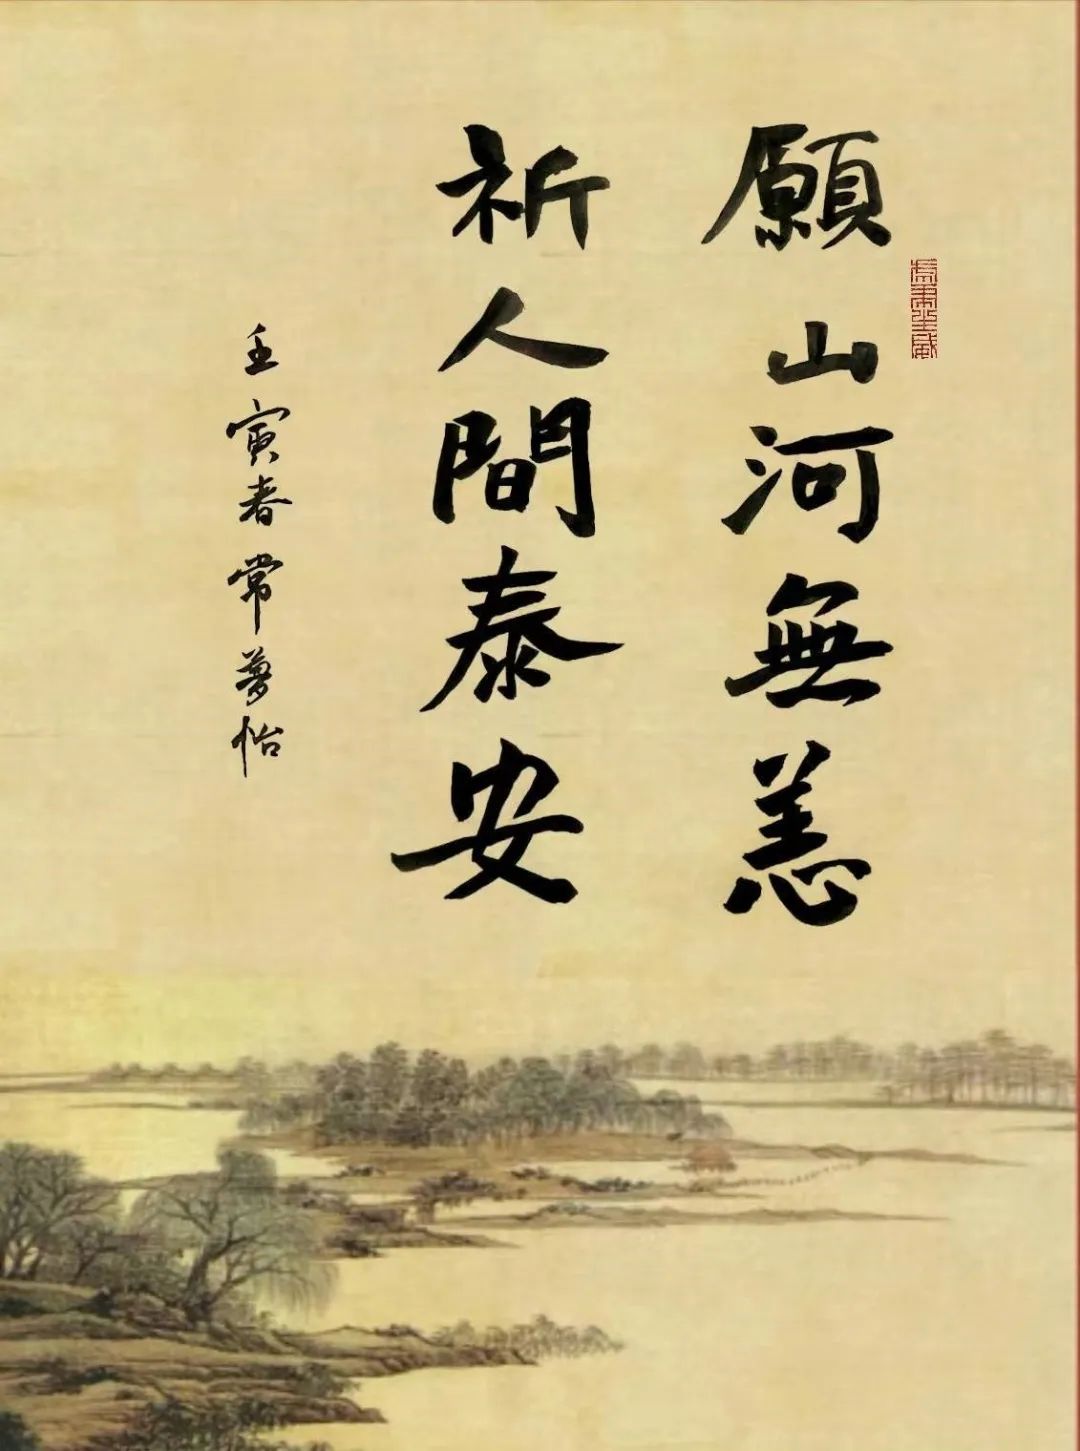 願山河無恙
祈人間泰安
壬寅春常夢怡